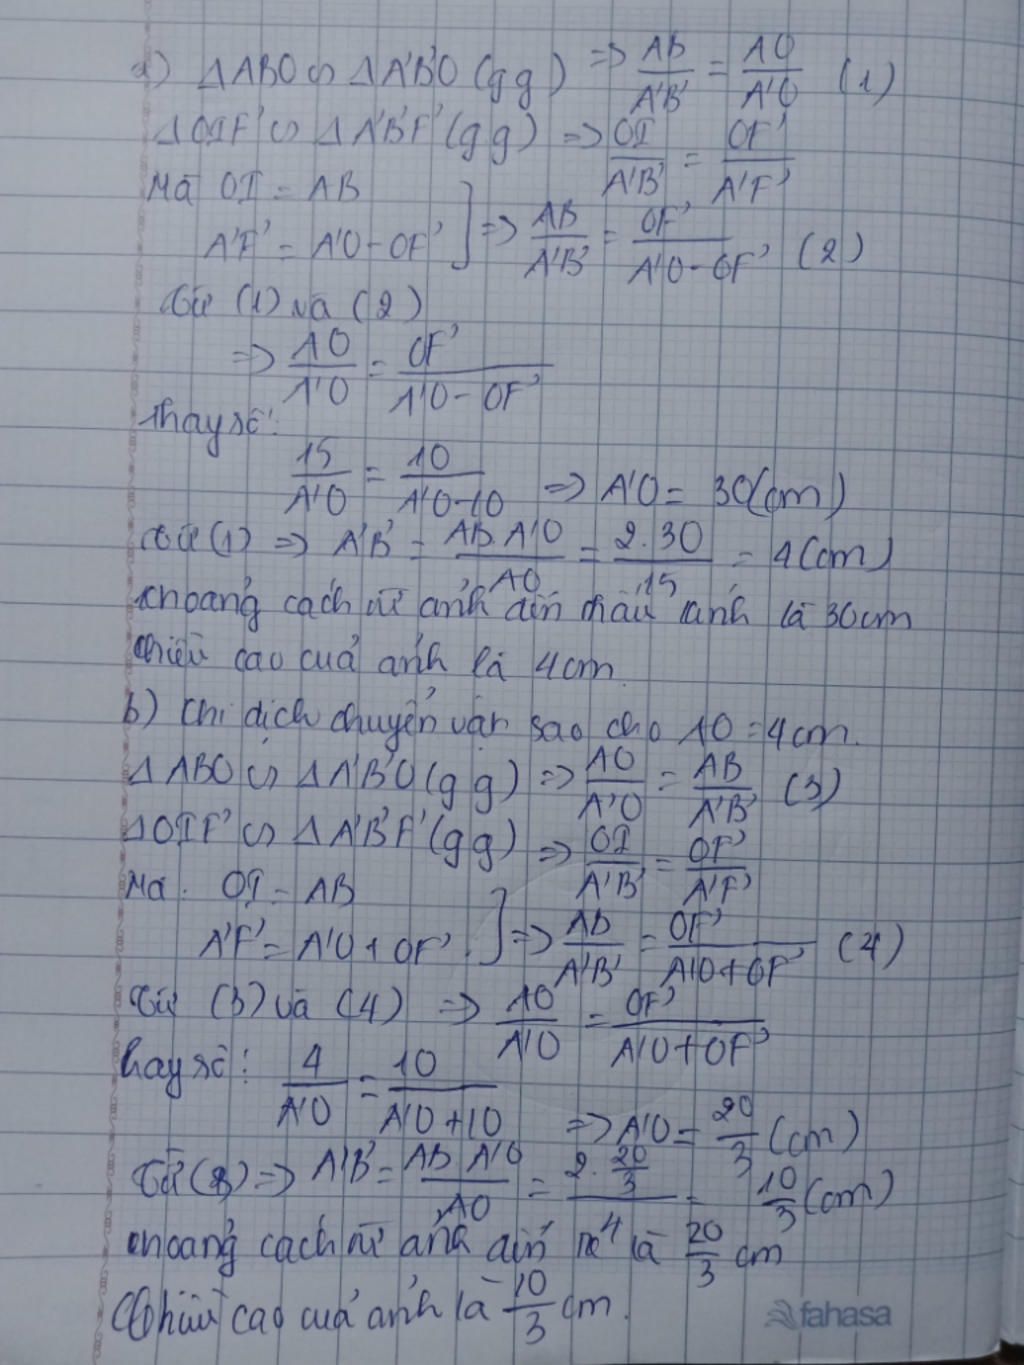 a) ΔABO ∽ ΔA'B'O (gg) => AB/A'B' = AO/A'O (1)
ΔOIF' ∽ ΔA'B'F' (gg) => OI/A'B' = OF'/A'F'
Mà OI = AB
A'F' = A'O - OF' ] => AB/A'B' = OF'/A'O - OF' (2)
Từ (1) và (2)
=> AO/A'O = OF'/A'O - OF'
Thay số:
15/A'O = 10/A'O-10 => A'O = 30(cm)
Từ (1) => A'B' = AB.A'O/AO = 2.30/15 = 4(cm)
Khoảng cách từ ảnh đến thấu kính là 30cm
Chiều cao của ảnh là 4cm.
b) Khi dịch chuyển vật sao cho AO = 4cm.
ΔABO ∽ ΔA'B'O (gg) => AO/A'O = AB/A'B' (3)
ΔOIF' ∽ ΔA'B'F' (gg) => OI/A'B' = OF'/A'F'
Mà: OI = AB
A'F' = A'O + OF' ] => AB/A'B' = OF'/A'O+OF' (4)
Từ (3) và (4) => AO/A'O = OF'/A'O+OF'
Thay số: 4/A'O = 10/A'O+10 => A'O = 20/3 (cm)
Từ (3) => A'B' = AB.A'O/AO = 2.20/3/4 = 10/3 (cm)
Khoảng cách từ ảnh đến là 20/3 cm
Chiều cao của ảnh là 10/3 cm.
fahasa